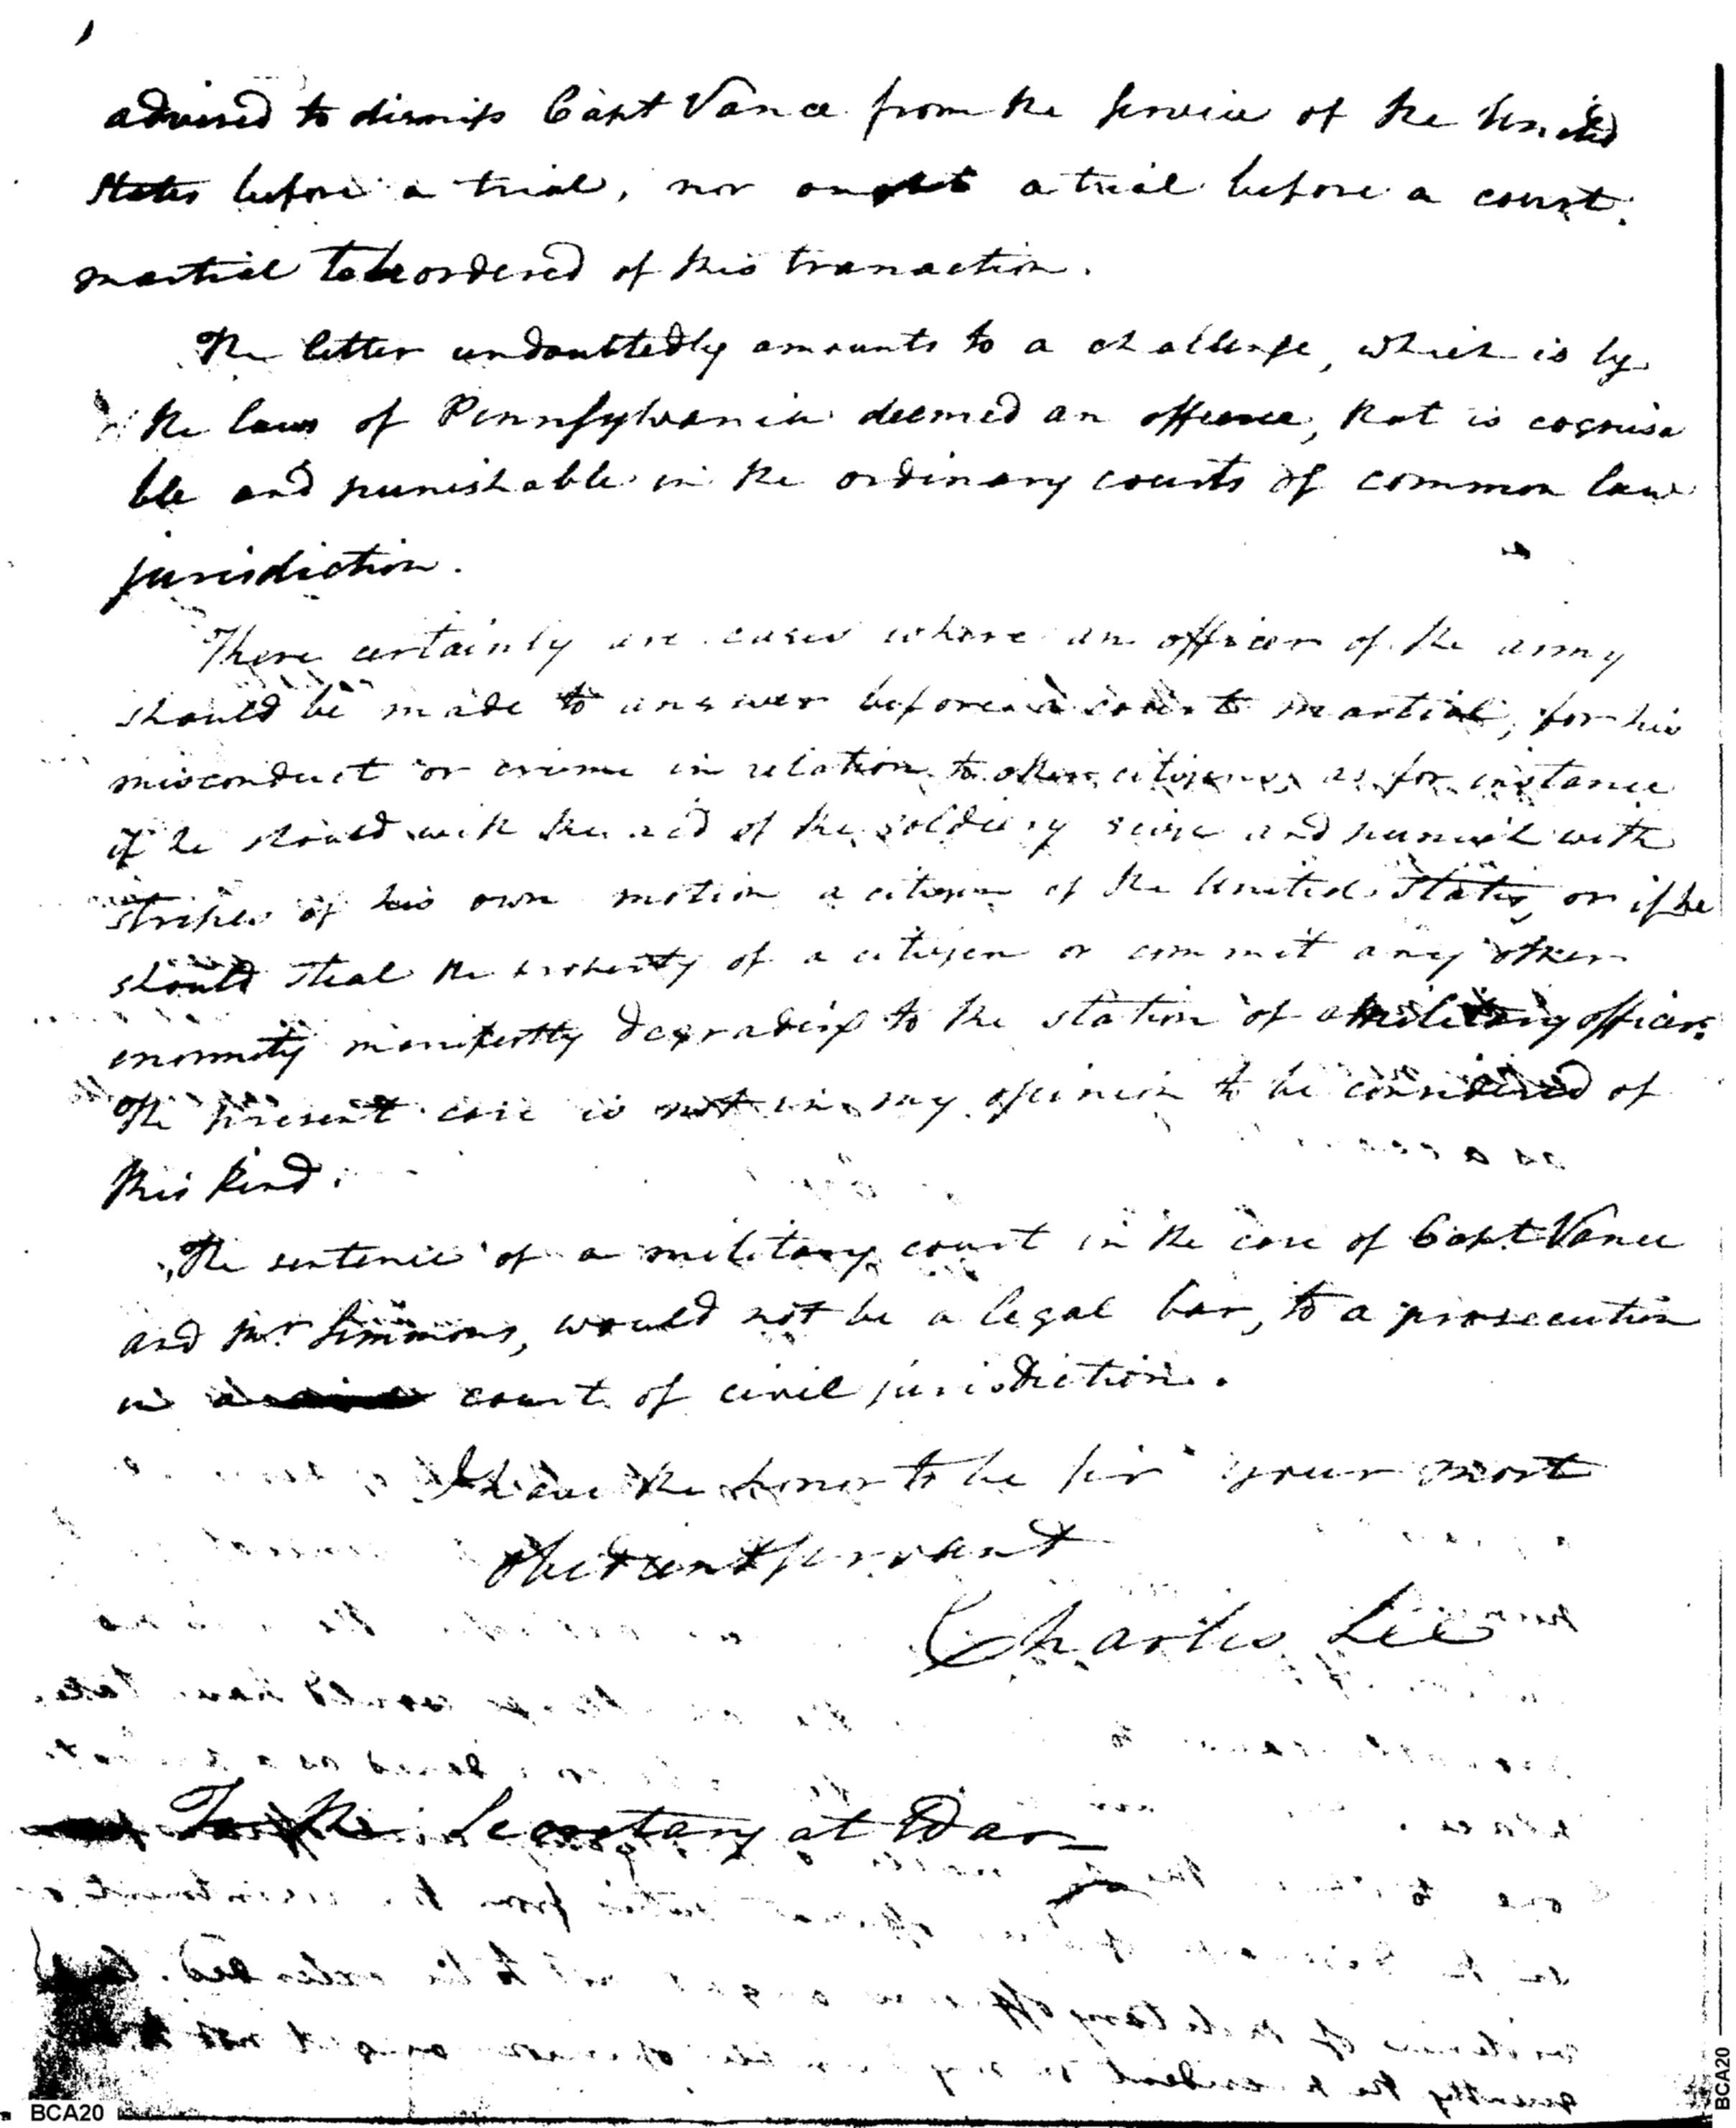 advised to dismiss Capt Vance from the service of the United
States before a trial, nor ought a trial before a court
martial to be ordered of this transaction.
The letter undoubtedly amounts to a challenge, which is by
the laws of Pennsylvania deemed an offence, that is cognisa
ble and punishable in the ordinary courts of common law
jurisdiction.
There certainly are cases where an officer of the army
should be made to answer before a court martial, for his
misconduct or crime in relation to other citizens, as for instance
if he should with the aid of the soldiery seize and punish with
stripes of his own motion a citizen of the United States, or if he
should steal the property of a citizen or commit any other
enormity manifestly degrading to the station of a military officer.
The present case is not in my opinion to be considered of
this kind.
The sentence of a military court in the case of Capt Vance
and Mr. Simmons, would not be a legal bar, to a prosecution
in a court of civil jurisdiction.
I have the honor to be sir your most
obedient servant
Charles Lee
To the Secretary at War
BCA20
BCA20